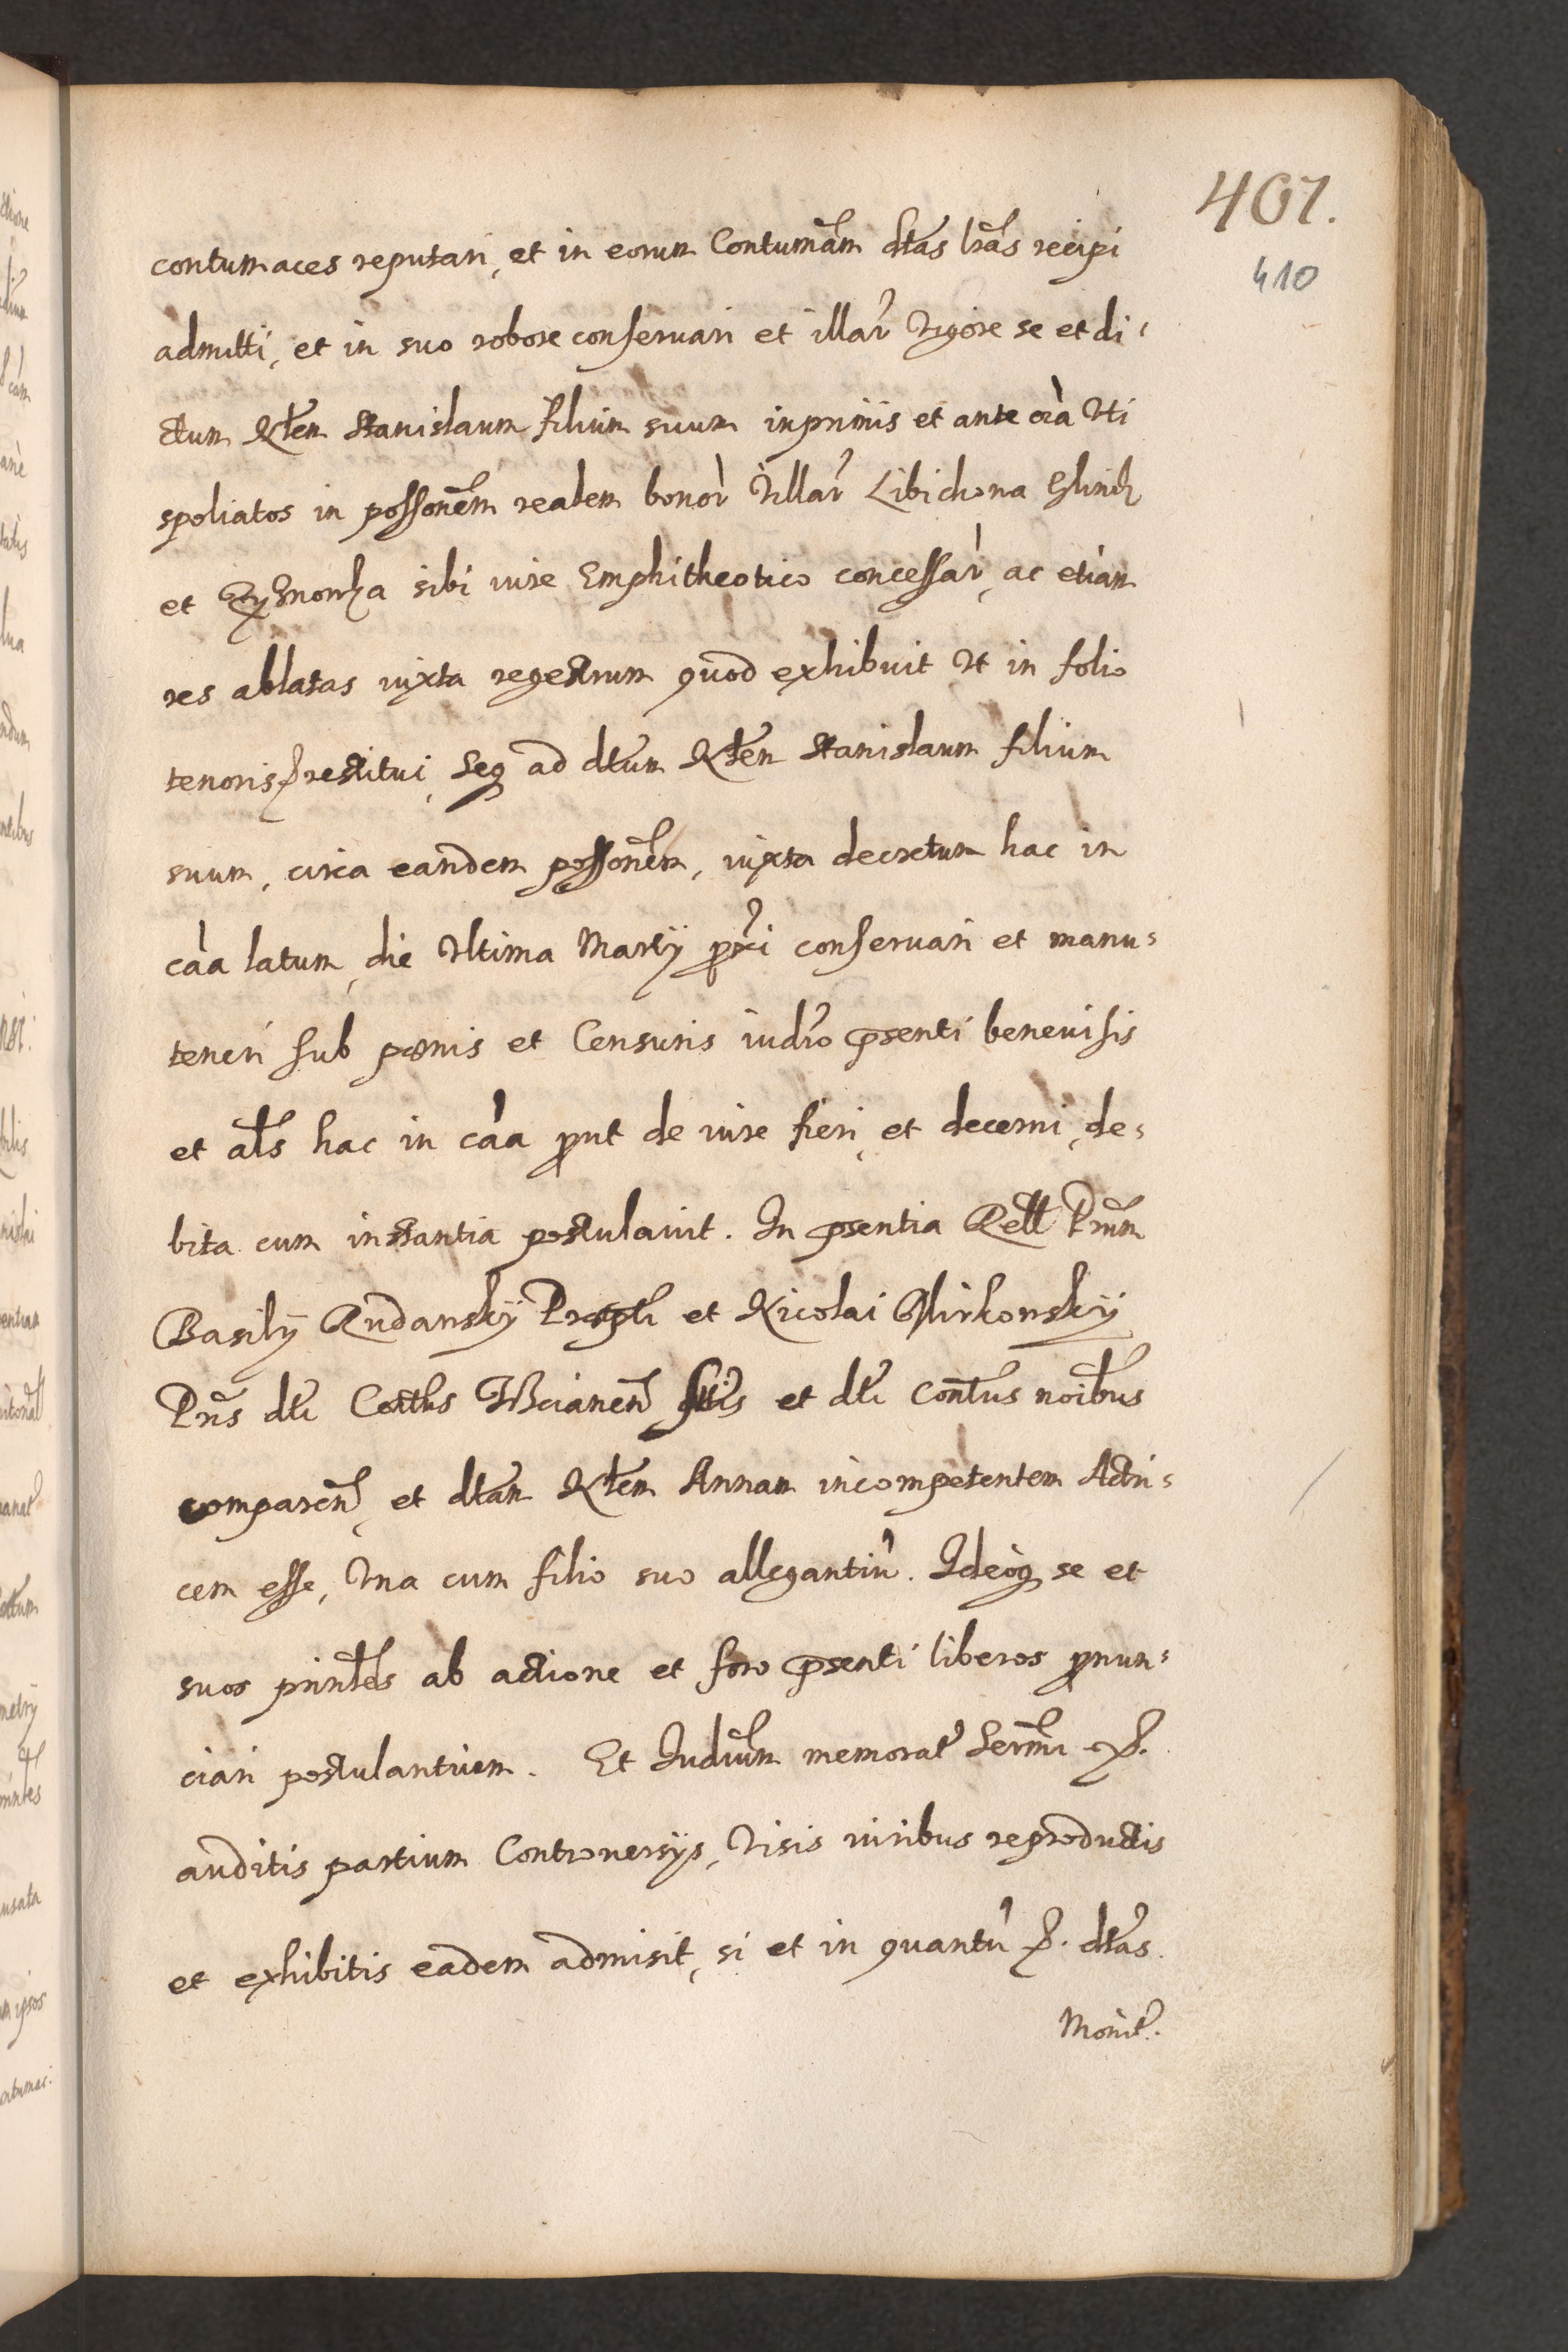 407.
410
contumaces reputari, et in eorum Contumãm dtas lras recipi
admitti, et in suo robore conservari et illar Vigore se et di-
ctum Nlem Stanislaum filium suum inprimis et ante oia Vti
spoliatos in possonem realem bonor Villar Libichowa Hlinki
et sibi iure Emphitheotico concessar, ac etiam
res ablatas iuxta regestrum quod exhibuit Vt in folio
tenoris restitui, seq ad dtum Nlem Stanislaum filium
suum, circa eandem possonem, iuxta decretum hac in
caa latum, die Vltima Martij pxi conservari et manu-
teneri sub poenis et Censuris iudio psenti benevisis
et als hac in caa prout de iure fieri, et decerni, de-
bita cum instantia postulavit. In psentia Rell Prum
Basilij Rudanskij et Nicolai
Pris dti Contus et dti Contus noibus
comparen, et dtam Nlem Annam incompetentem Actri-
cem esse, Vna cum filio suo allegantiu. Ideoq se et
suos prinles ab actione et foro psenti liberos pnun-
ciari postulantium. Et Iudium memorat Sermi
auditis partium Controversijs, Visis iuribus reproductis
et exhibitis eadem admisit, si et in quantu dtas
Monit.